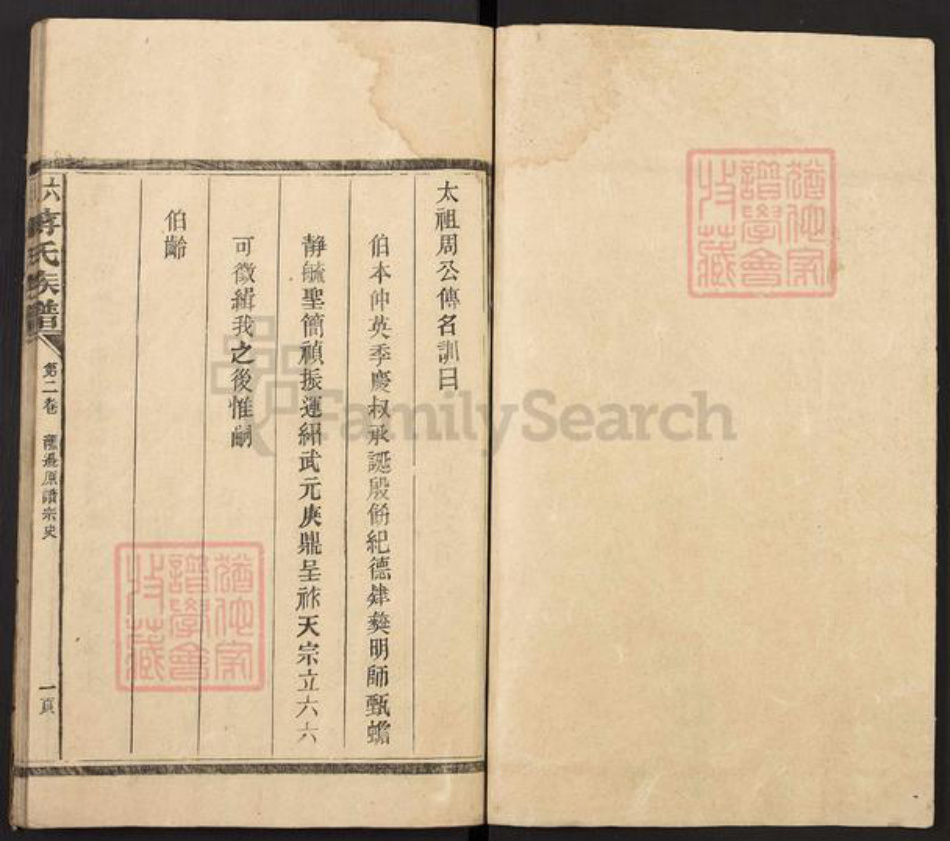 太祖周公傳名訓曰
伯本仲英季慶叔承誕殷紀德肆彜明師甄蟾
靜毓聖簡禎振運紹武元庚鼎呈祚天宗立六六
可徵緝我之後惟嗣
伯齡
六 蔣氏族譜 第二卷 源譜宗史 一頁
猶他家譜學會收藏
猶他家譜學會收藏
FamilySearch